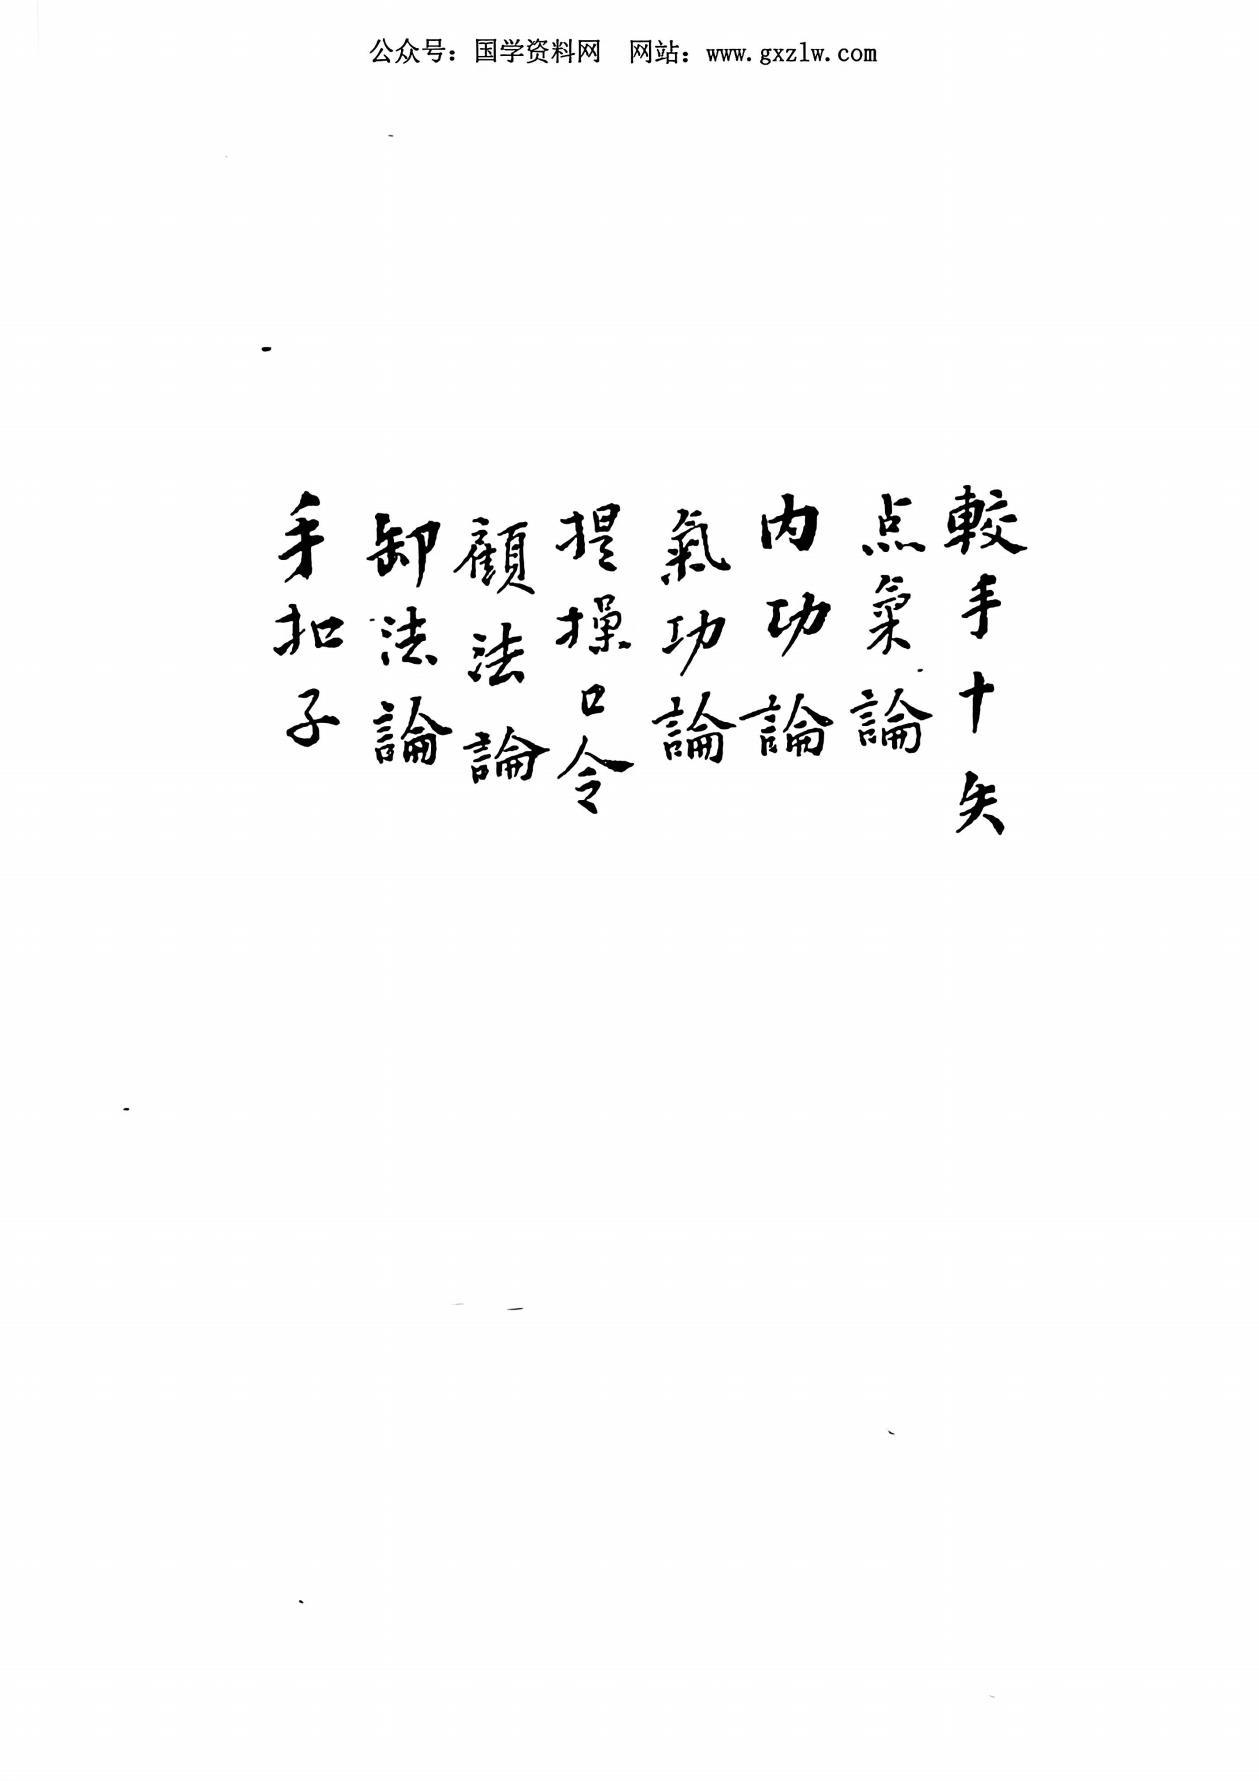 公众号：国学资料网　网站：www.gxzlw.com
較手十失
点氣論
内功論
氣功論
提操口令
顧法論
卸法論
手扣子